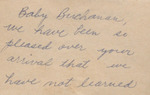 Baby Buchanan,
we have been so
pleased over your
arrival that we
have not learned